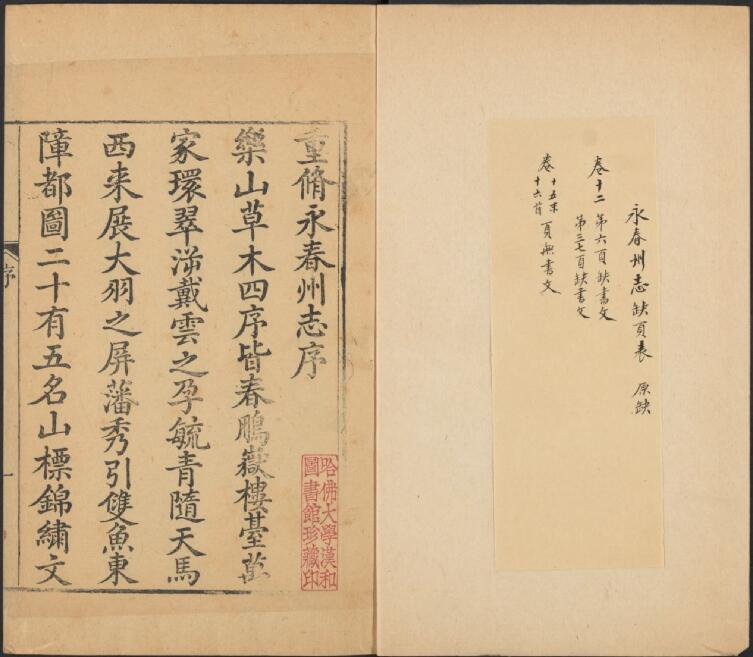 永春州志缺頁表 原缺
卷十二 第六頁缺書文
第三七頁缺書文
卷十五末
十六首 頁無書文
重脩永春州志序
樂山草木四序皆春鵬嶽樓臺萬
家環翠滃戴雲之孕毓青隨天馬
西来展大羽之屏藩秀引雙魚東
障都圖二十有五名山標錦繡文
哈佛大學漢和
圖書館珍藏印
序
一